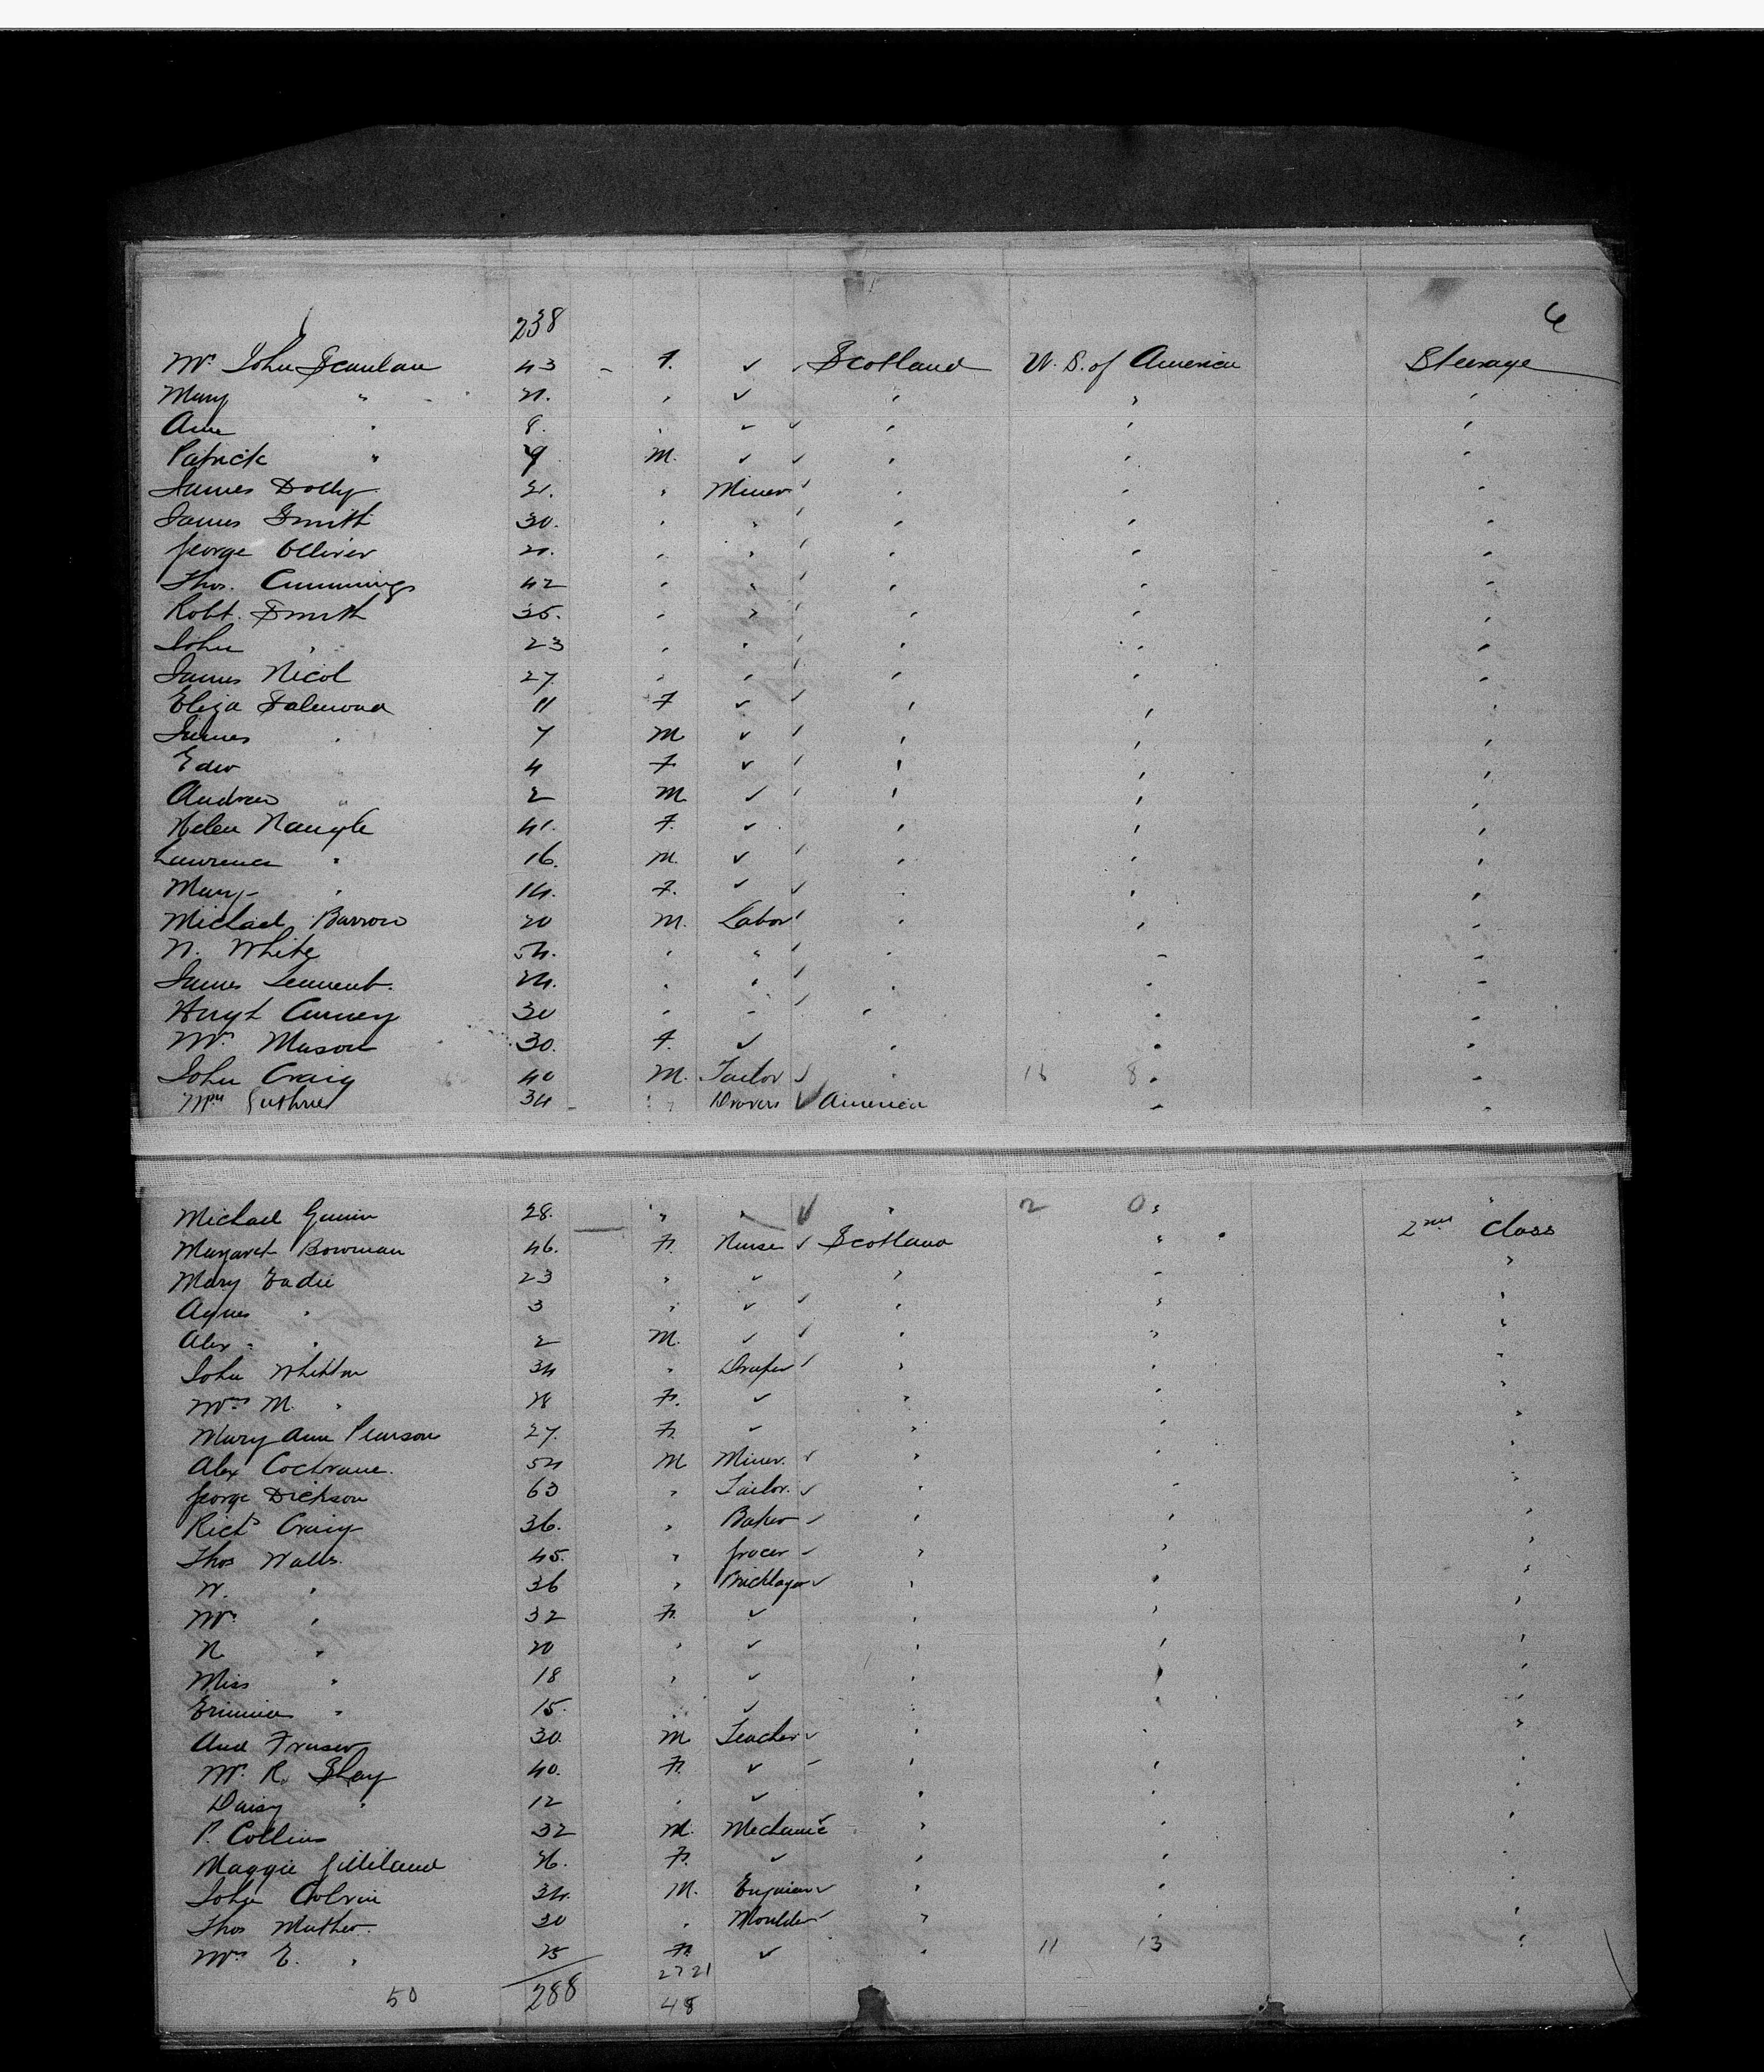 238 6
Mrs. John Scanlan 43 - F. ✓ Scotland U. S. of America Steerage
Mary " 21. " ✓ " " "
Ann " 8. " ✓ ✓ " " "
Patrick " 9 M. ✓ ✓ " " "
James Dolly 21. " Miner " " "
James Smith 30. " " " " "
George Olliver 21. " " " " "
Thos. Cummings 42 " " " " "
Robt. Smith 35. " " " " "
John " 23 " " " " "
James Nicol 27. " " " " "
Eliza 11 F ✓ " " "
James " 7 M ✓ " " "
4 F ✓ " " "
Andrew " 2 M ✓ " " "
Helen Naugle 41. F. ✓ " " "
Lawrence " 16. M. ✓ " " "
Mary " 14. F. ✓ ✓ " " "
Michael Barrow 20 M. Labor " " "
N. White 54. " " " " "
James 24. " " " " "
Carney 30 " " " " "
Mrs. Mason 30. F. ✓ " " "
John Craig 40 M. Tailor ✓ " 16 8 " "
Wm Guthrie 34 - " Drovers ✓ America " "
Michael 28. " " ✓ " 2 0 " "
Margaret Bowman 46. F. Nurse ✓ Scotland " 2nd Class
Mary Eadie 23 " ✓ " " "
Agnes " 3 " ✓ ✓ " " "
Alex " 2 M. ✓ ✓ " " "
John Whitton 34 " Draper " " "
Mrs M. " 28 F. ✓ " " "
Mary Ann Pearson 27. F. ✓ " " "
Alex Cochrane. 54 M Miner. ✓ " " "
George Dickson 63 " Tailor. ✓ " " "
Richd Craig 36. " Baker ✓ " " "
Thos Walls. 45. " Grocer ✓ " " "
W. " 36 " Bricklayer ✓ " " "
Mrs. " 32 F. ✓ " " "
N " 20 " ✓ " " "
Miss " 18 " ✓ " " "
" 15. " ✓ " " "
And Fraser 30. M Teacher ✓ " " "
Mrs. R. Shay 40. F. ✓ " " "
Daisy " 12 " ✓ " " "
P. Collins 32 M. Mechanic " " "
Maggie Gilliland 26. F. ✓ " " "
John Colvin 34. M. ✓ " " "
Thos Mather. 30 " Moulder ✓ " " "
Mrs E. " 25 F. ✓ " 11 13 "
27 21
50 288 48